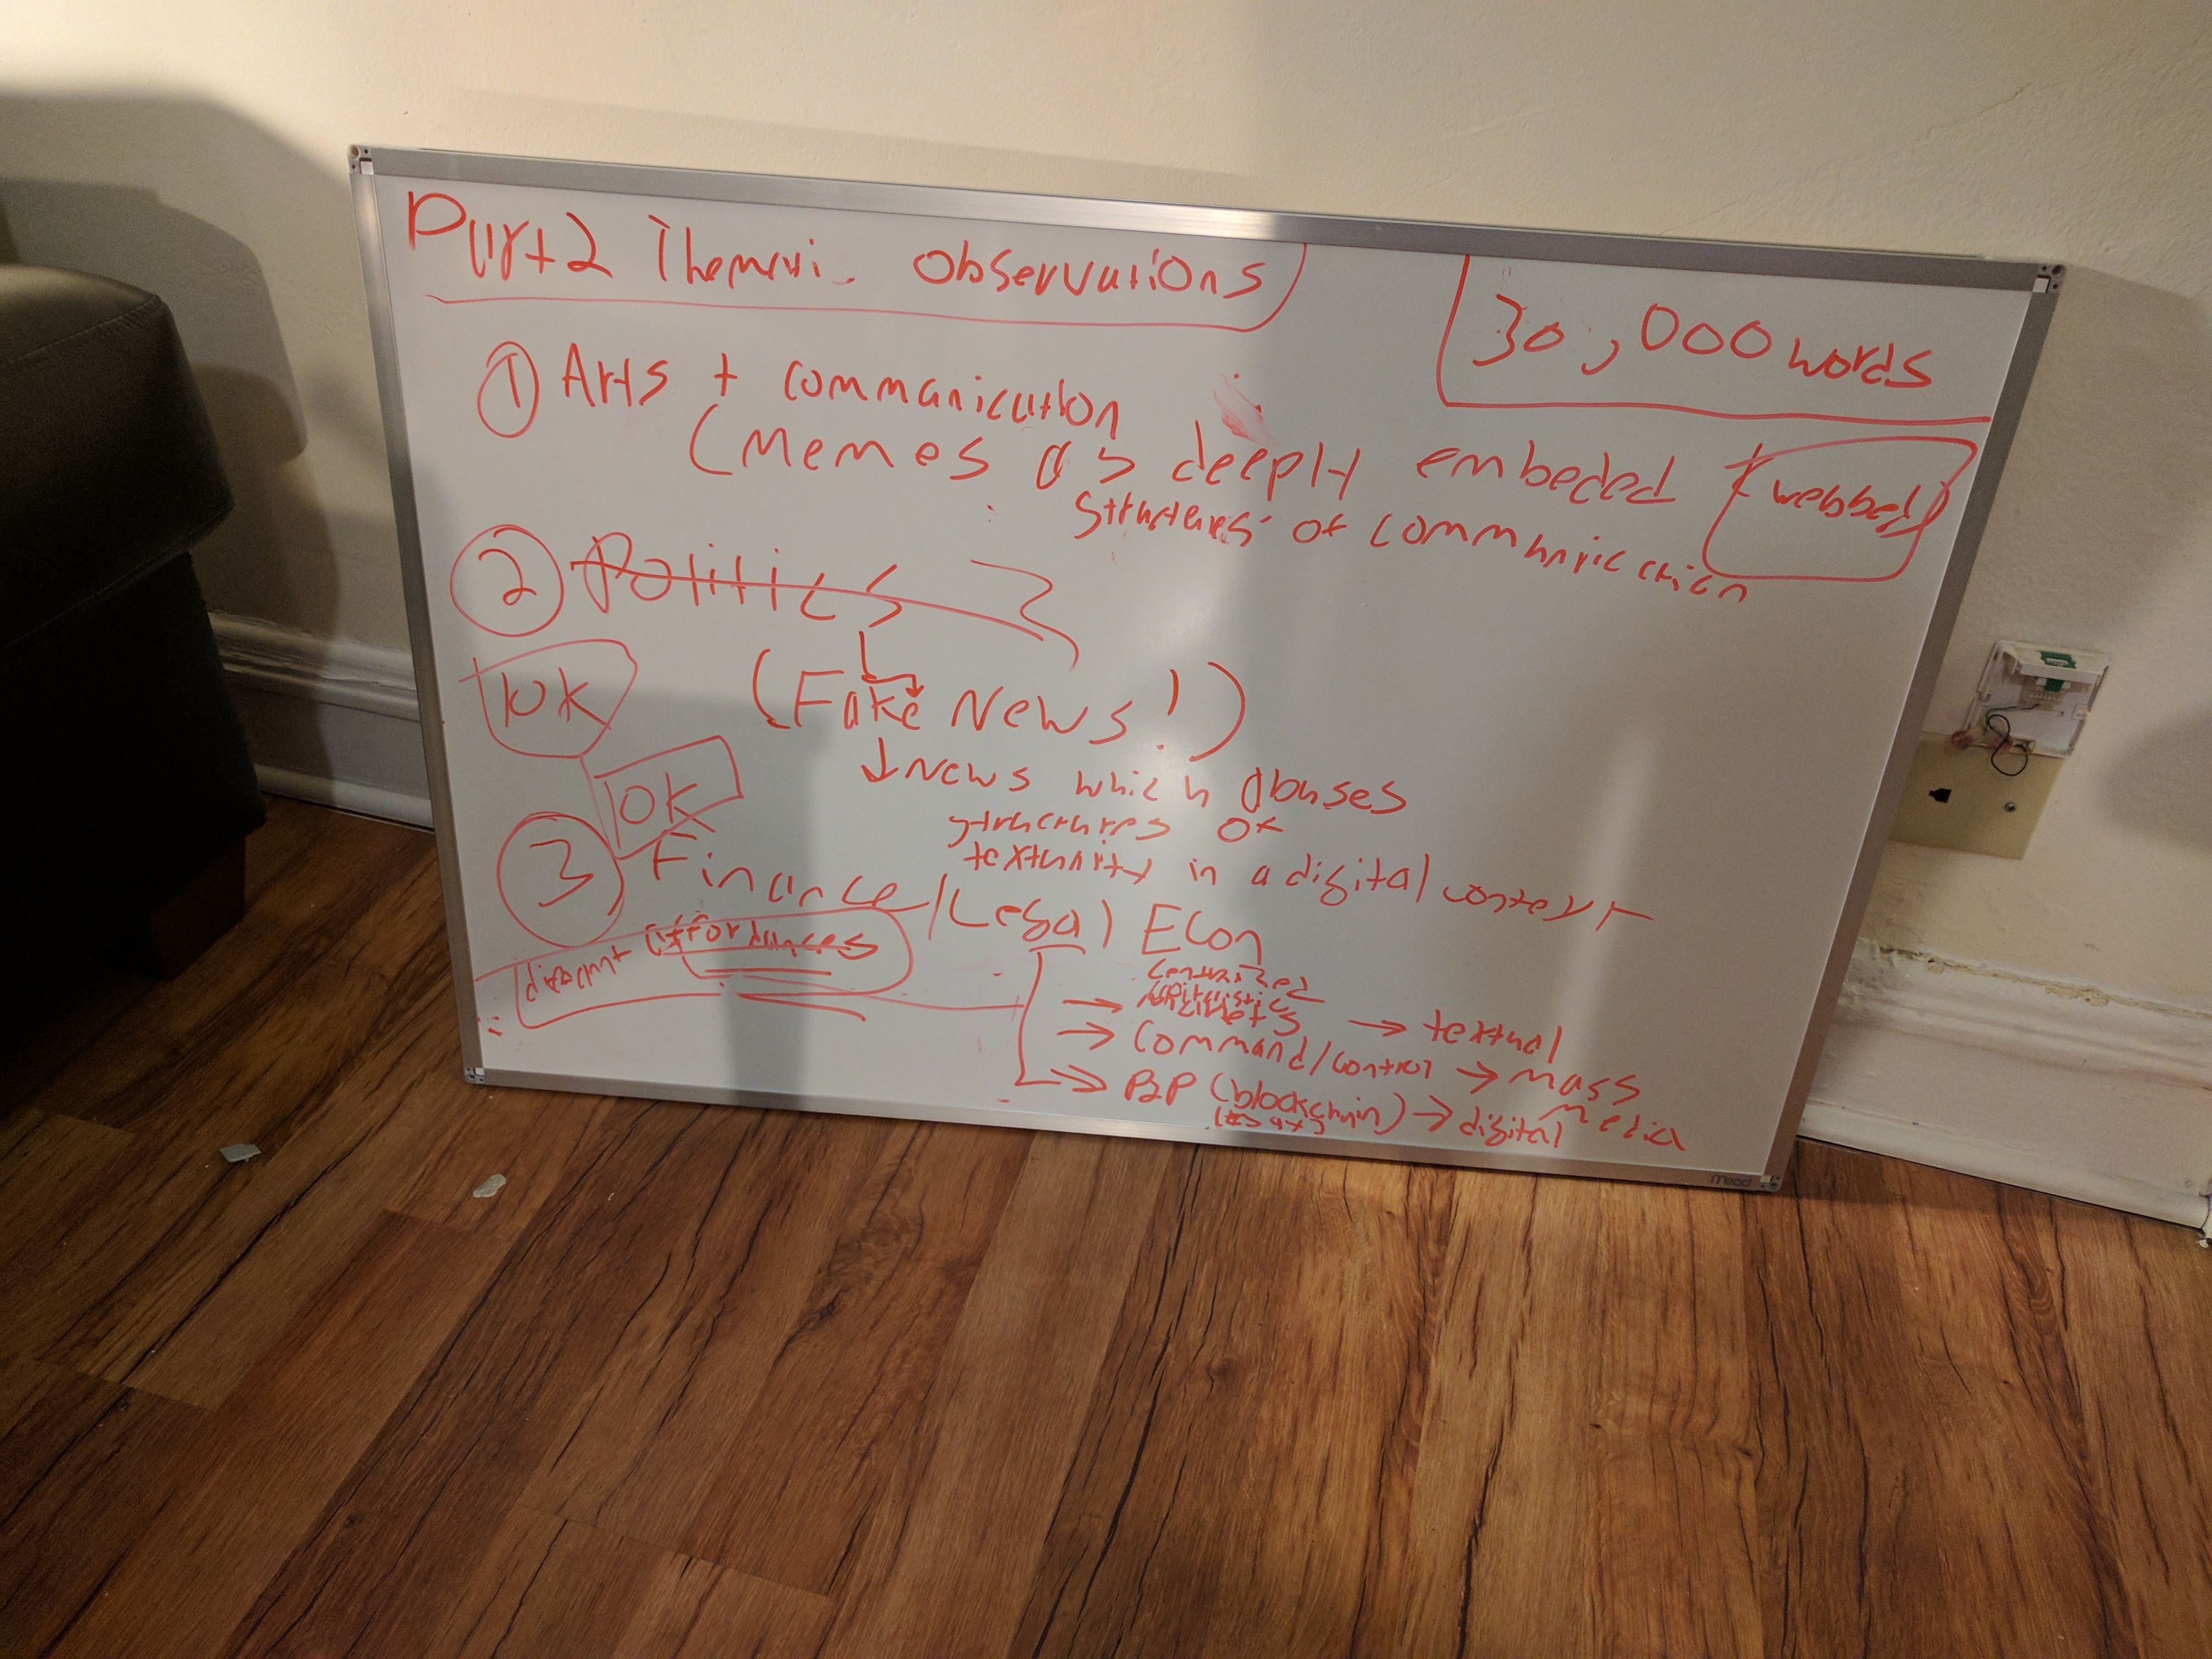 Part 2 Themati_ Observations
30,000 words
① Arts + communication
(Memes as deeply embeded + (webbed)
structures of communication
② Politics
10K
(Fake News!)
↓ News which abuses
structures of
textuality in a digital context
10K
③ Finance/Legal Econ
different affordances
centralized
capitalistic
→ markets → textual
→ Command/control → mass media
→ P2P (blockchain) → digital
Mead